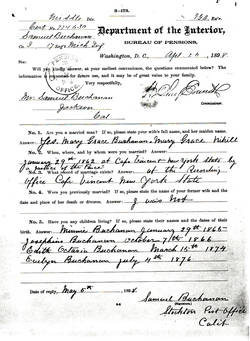 3-173.
Middle Div.
Cert. No.
Samuel Buchanan
Co. I 17 Reg. Mich Inf
Department of the Interior,
BUREAU OF PENSIONS,
Washington, D. C., 1898
Will you kindly answer, at your earliest convenience, the questions enumerated below? The
information is requested for future use, and it may be of great value to your family.
Very respectfully,
Mr. Samuel Buchanan
Jackson
Cal
No. 1. Are you a married man? If so, please state your wife's full name, and her maiden name.
Yes. Mary Grace Buchanan. Mary Grace
No. 2. When, where, and by whom were you married?
January 29th 1862 at Cape Vincent New York State by
a Justice of the Peace
No. 3. What record of marriage exists? at the Recording
Office Cape Vincent New York State
No. 4. Were you previously married? If so, please state the name of your former wife and the
date and place of her death or divorce. I was Not
No. 5. Have you any children living? If so, please state their names and the dates of their
birth. Minnie Buchanan January 29th 1865
Josephine Buchanan October 7th 1866
Edith Buchanan March 15th 1874
Evelyn Buchanan July 4th 1876
Date of reply, May 5th 1898
Samuel Buchanan
Stockton Post Office
Calif.